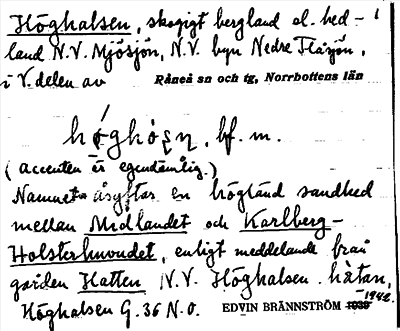 Höghalsen, skogigt bergland el. hed-
land N.V. Mjösjön, N.V. byn Nedre Flåsjön,
i V. delen av Råneå sn och tg, Norrbottens län
bf. m.
(accenten är egendomlig.)
Namnet åsyftar en högländ sandhed
mellan Midlandet och Karlberg-
Holsterknoudet, enligt meddelande från
gården Hatten N.V. Höghalsen.
Höghalsen G. 36 N.O. EDVIN BRÄNNSTRÖM 1939 1942.